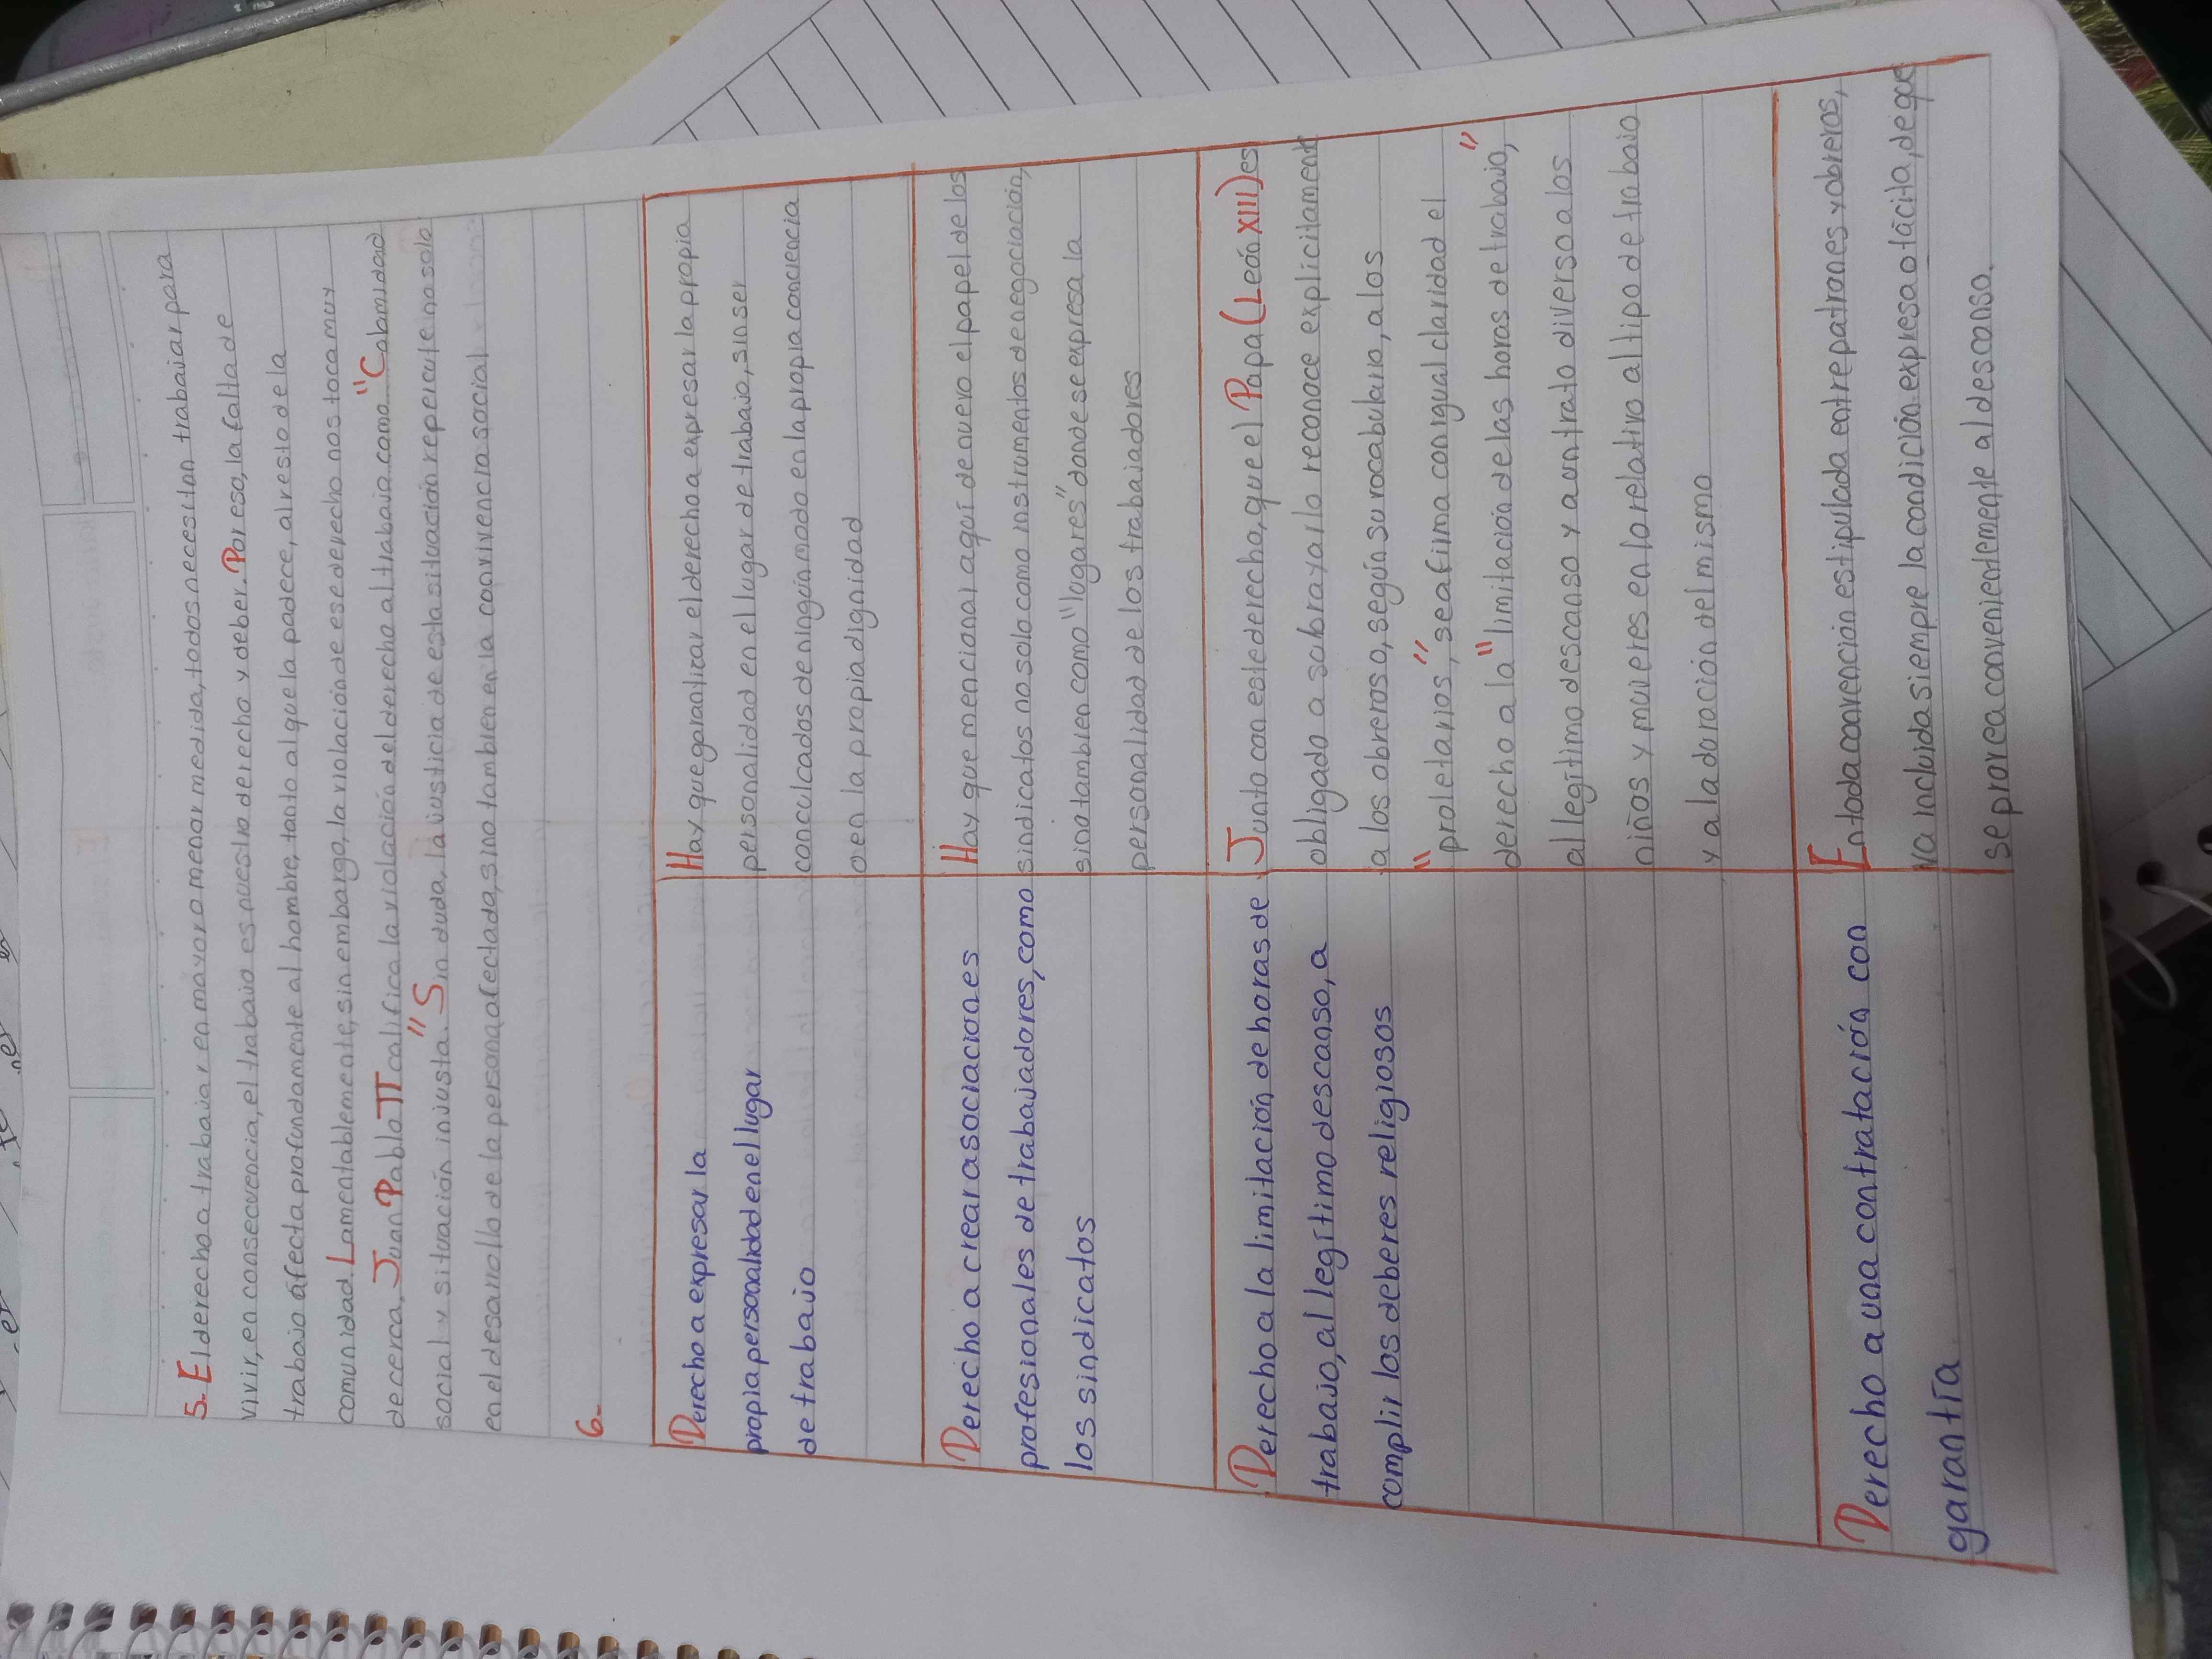 5- El derecho a trabajar en mayor o menor medida, todos necesitan trabajar para
vivir, en consecuencia, el trabajo es puesto derecho y deber. Por eso, la falta de
trabajo afecta profundamente al hombre, tanto al que la padece, al resto de la
comunidad. Lamentablemente, sin embargo, la violación de ese derecho nos toca muy
de cerca. Juan Pablo II califica la violación del derecho al trabajo como "Calamidad
social y situación injusta". Sin duda, la justicia de esta situación repercute no solo
en el desarrollo de la persona afectada, sino tambien en la convivencia social
6-
Derecho a expresar la
propia personalidad en el lugar
de trabajo
Hay que garantizar el derecho a expresar la propia
personalidad en el lugar de trabajo, sin ser
conculcados de ningún modo en la propia conciencia
o en la propia dignidad
Derecho a crear asociaciones
profesionales de trabajadores, como
los sindicatos
Hay que mencionar aquí de nuevo el papel de los
sindicatos no solo como instrumentos de negociación,
sino tambien como "lugares" donde se expresa la
personalidad de los trabajadores
Derecho a la limitación de horas de
trabajo, al legítimo descanso, a
complir los deberes religiosos
Junto con este derecho, que el Papa (León XIII) es
obligado a subrayarlo reconoce explicitament
a los obreros o, según su vocabulario, a los
"proletarios", se afirma con igual claridad el
derecho a la "limitación de las horas de trabajo",
al legítimo descanso y a un trato diverso a los
niños y mujeres en lo relativo al tipo de trabajo
y a la doración del mismo
Derecho a una contratación con
garantía
En toda convención estipulada entre patrones y obreros,
va incluida siempre la condición expresa o tácita, de que
se provea convenientemente al descanso.